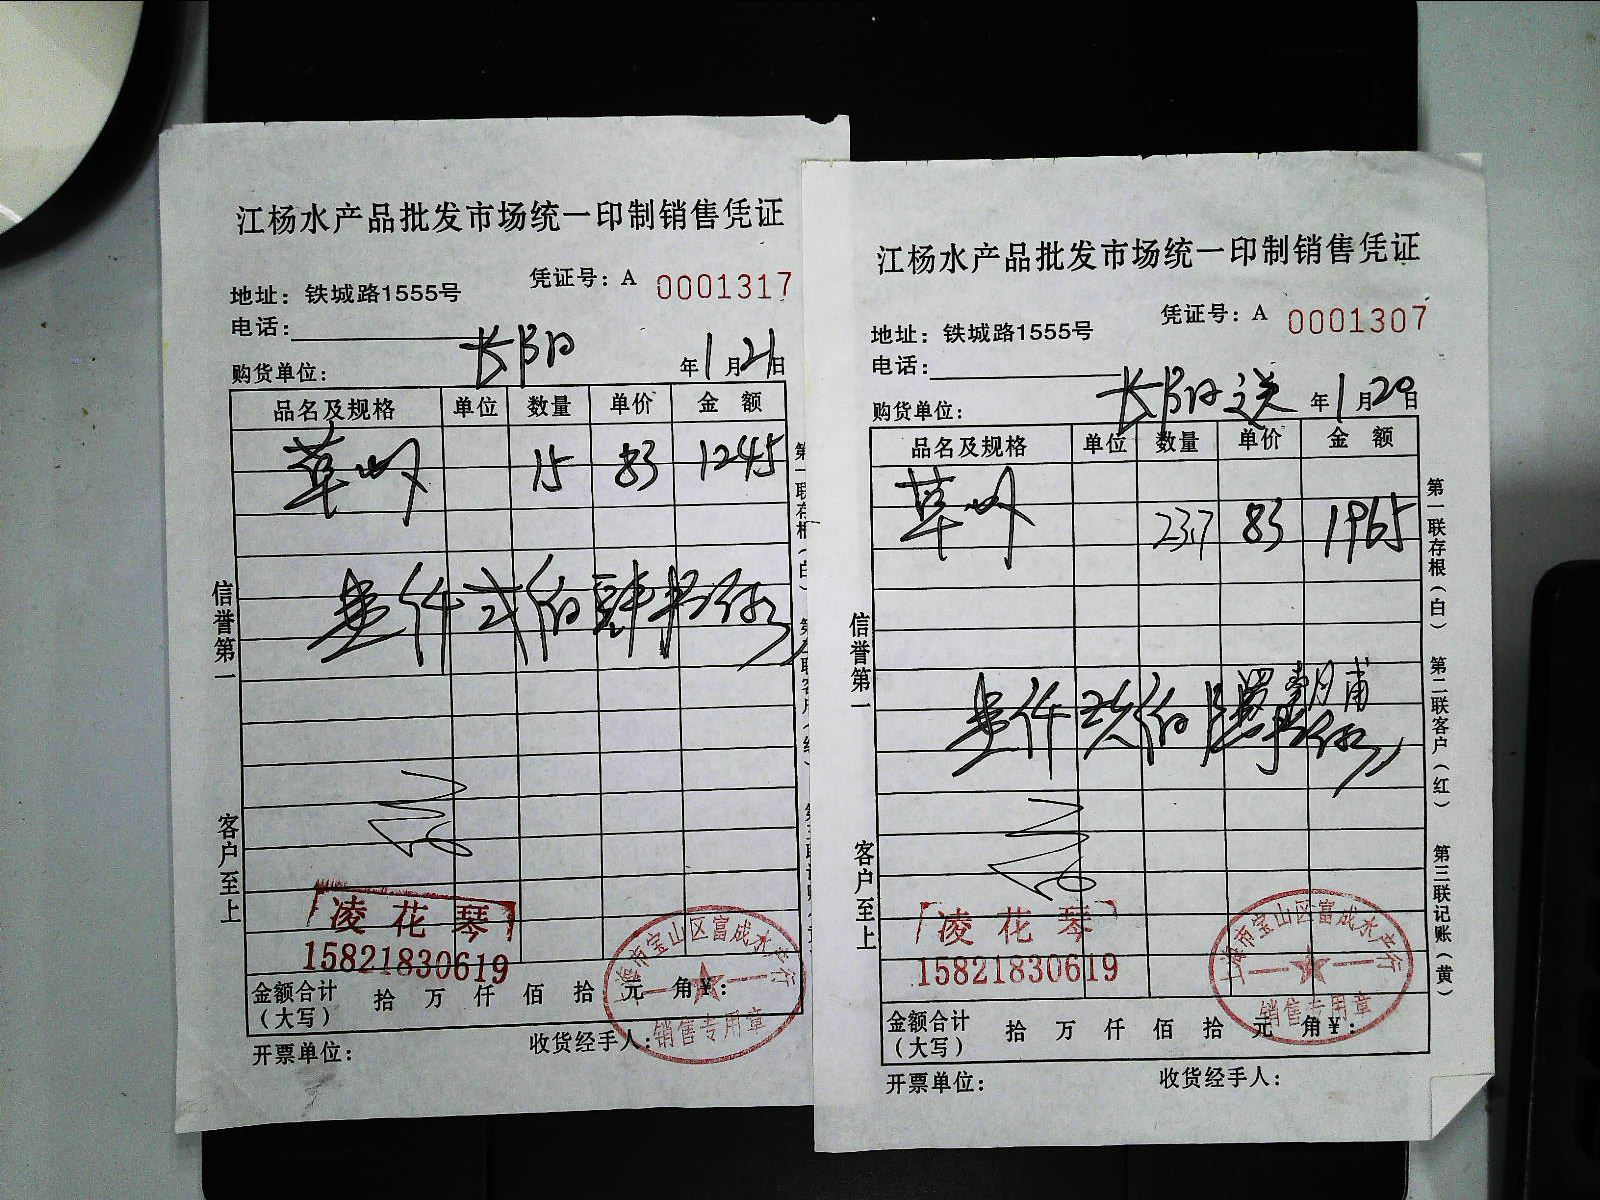 江杨水产品批发市场统一印制销售凭证
凭证号：A 0001317
地址：铁城路1555号
电话：
购货单位：长阳 年1月21日
品名及规格 单位 数量 单价 金 额
草虾 15 83 1245
壹仟弍佰肆拾伍
信誉第一
客户至上
凌花琴
15821830619
上海市宝山区富成水产行
销售专用章
金额合计（大写） 拾 万 仟 佰 拾 元 角¥：
开票单位： 收货经手人：
江杨水产品批发市场统一印制销售凭证
凭证号：A 0001307
地址：铁城路1555号
电话：
购货单位：长阳送 年1月20日
品名及规格 单位 数量 单价 金 额
草虾 23.7 83 1965
壹仟玖佰
信誉第一
客户至上
第一联存根（白） 第二联客户（红） 第三联记账（黄）
凌花琴
15821830619
上海市宝山区富成水产行
销售专用章
金额合计（大写） 拾 万 仟 佰 拾 元 角¥：
开票单位： 收货经手人：